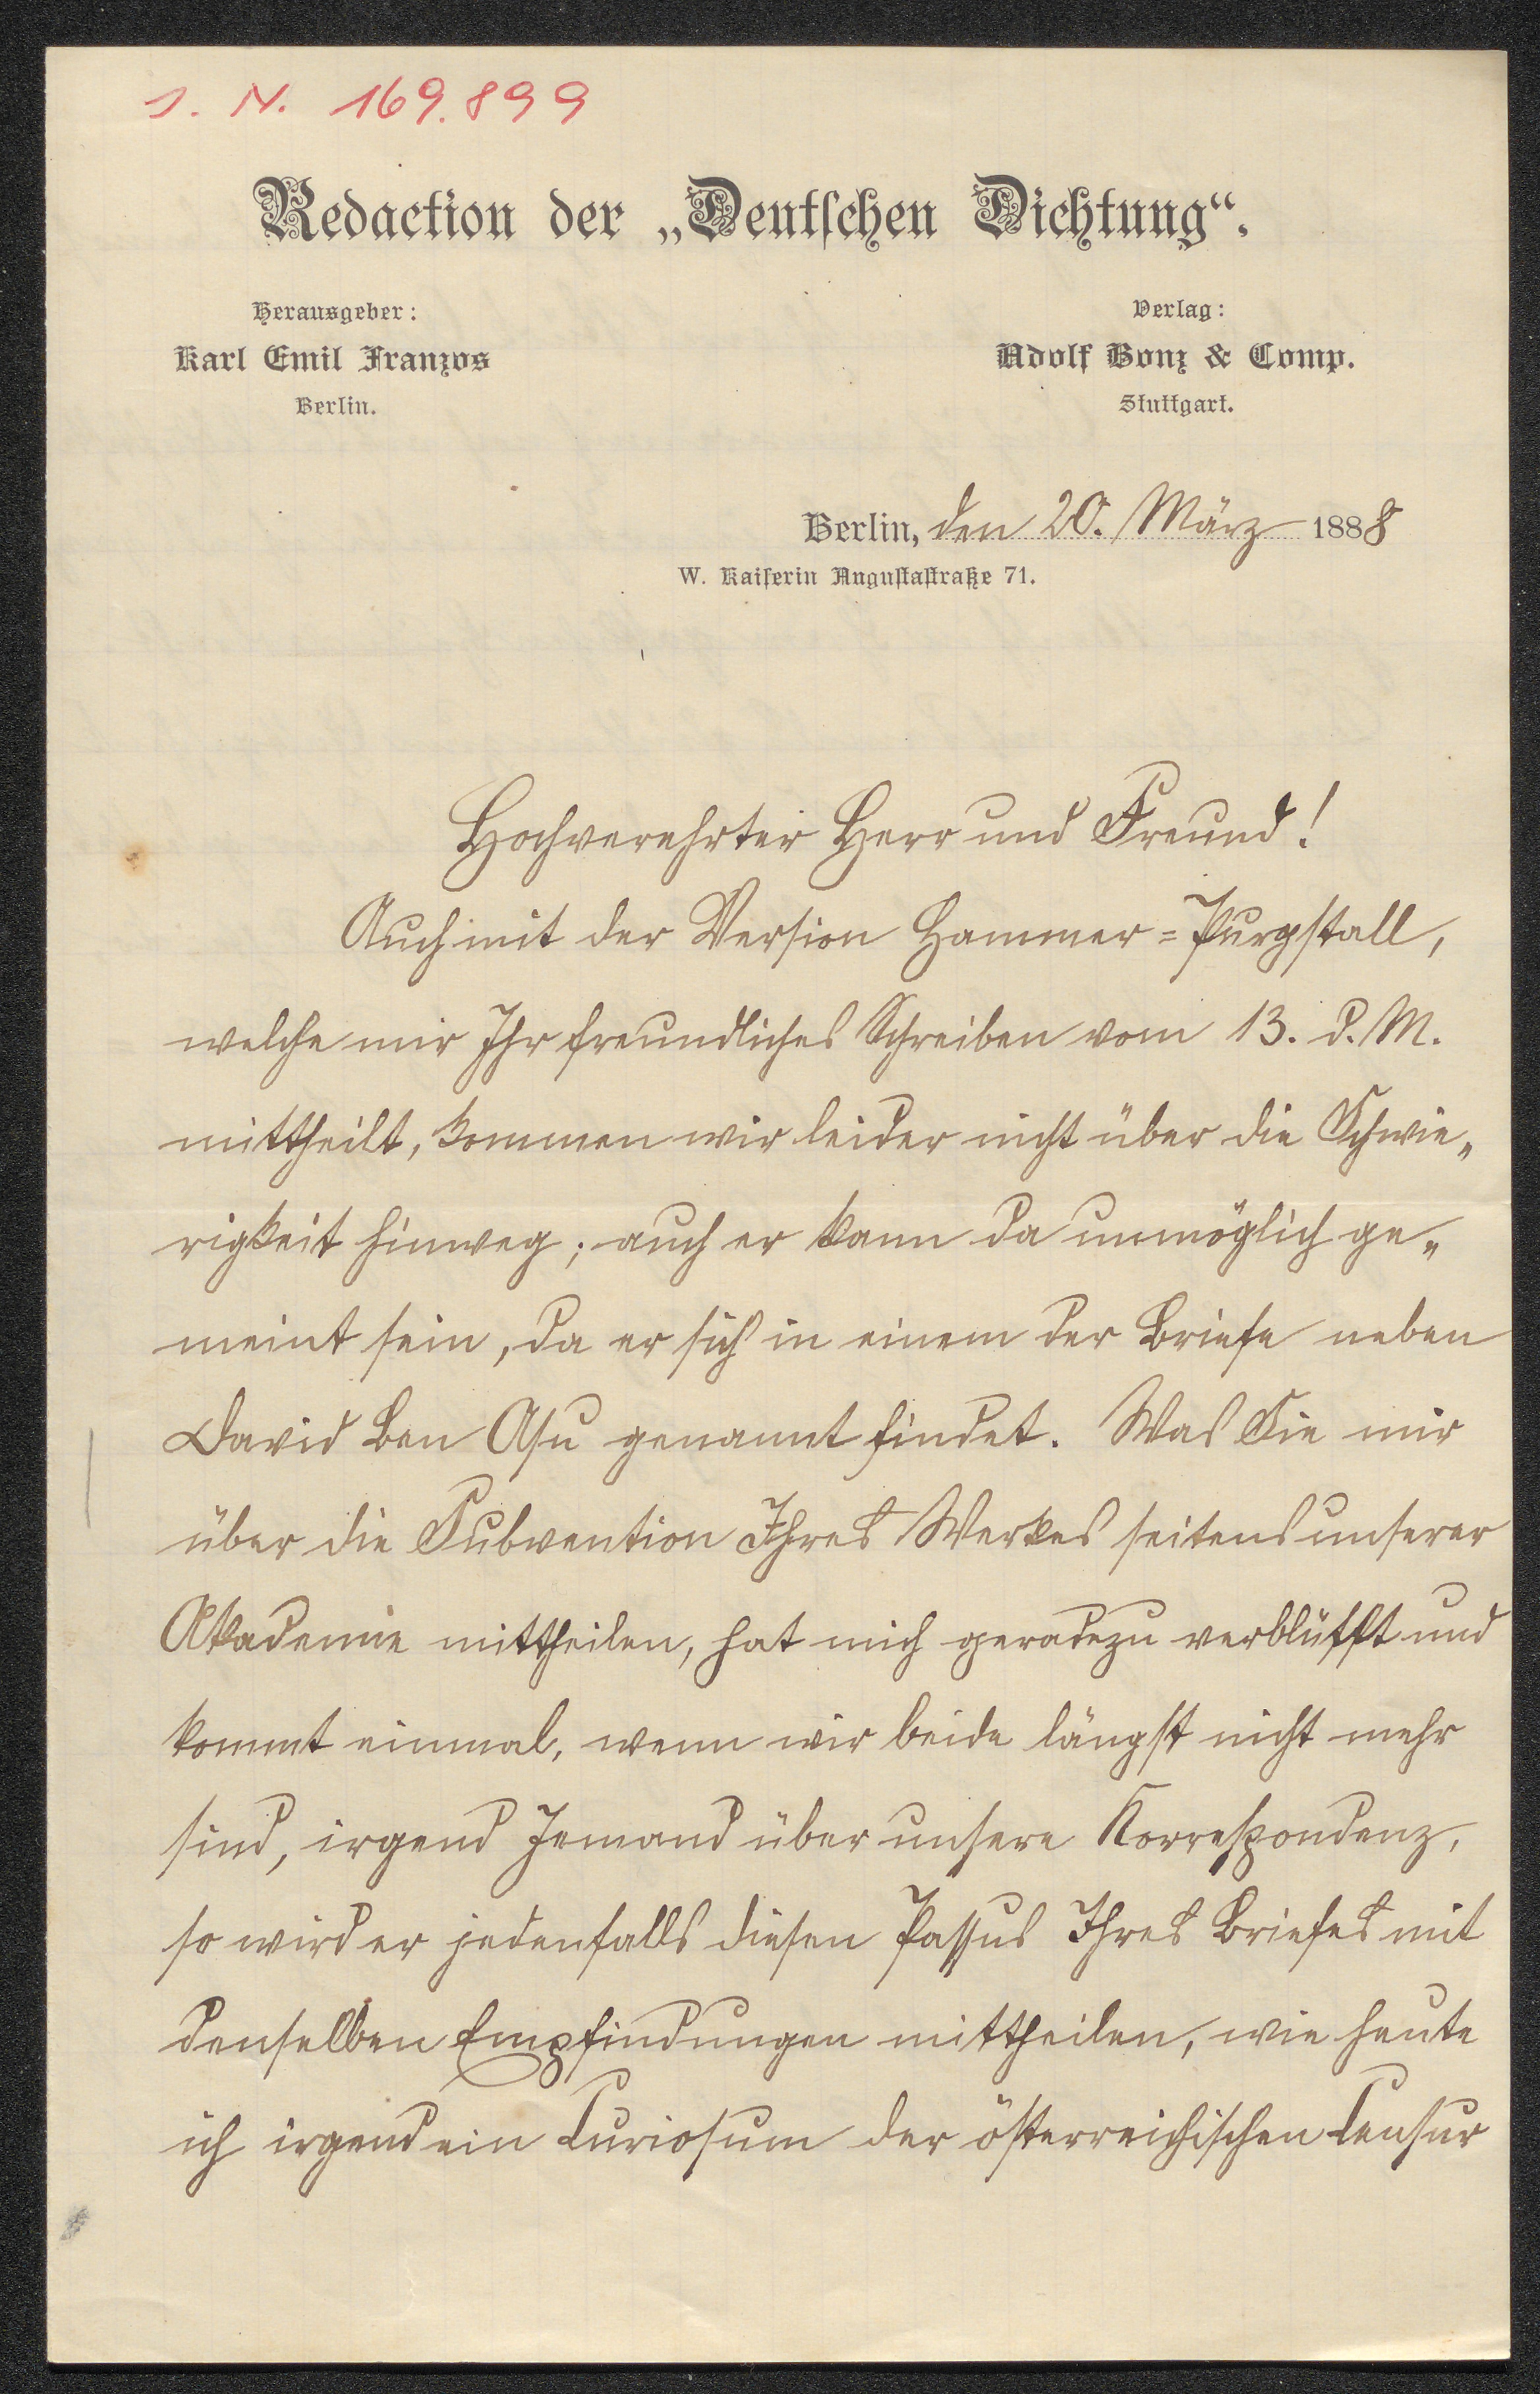 J. N. 169.899
Redaction der „Deutschen Dichtung“.
Herausgeber:
Karl Emil Franzos
Berlin.
Verlag:
Adolf Bonz & Comp.
Stuttgart.
Berlin, den 20. März 1888
W. Kaiserin Augustastraße 71.
Hochverehrter Herr und Freund!
Auch mit der Version Hammer=Purgstall,
welche mir Ihr freundliches Schreiben vom 13. d. M.
mittheilt, kommen wir leider nicht über die Schwie„
rigkeit hinweg; auch er kann da unmöglich ge„
meint sein, da er sich in einem der Briefe neben
David Ben Asu genannt findet. Was Sie mir
über die Subvention Ihres Werkes seitens unserer
Akademie mittheilen, hat mich geradezu verblüfft und
kommt einmal, wenn wir beide längst nicht mehr
sind, irgend Jemand über unsere Korrespondenz,
so wird er jedenfalls diesen Passus Ihres Briefes mit
denselben Empfindungen mittheilen, wie heute
ich irgend ein Curiosum der österreichischen Censur